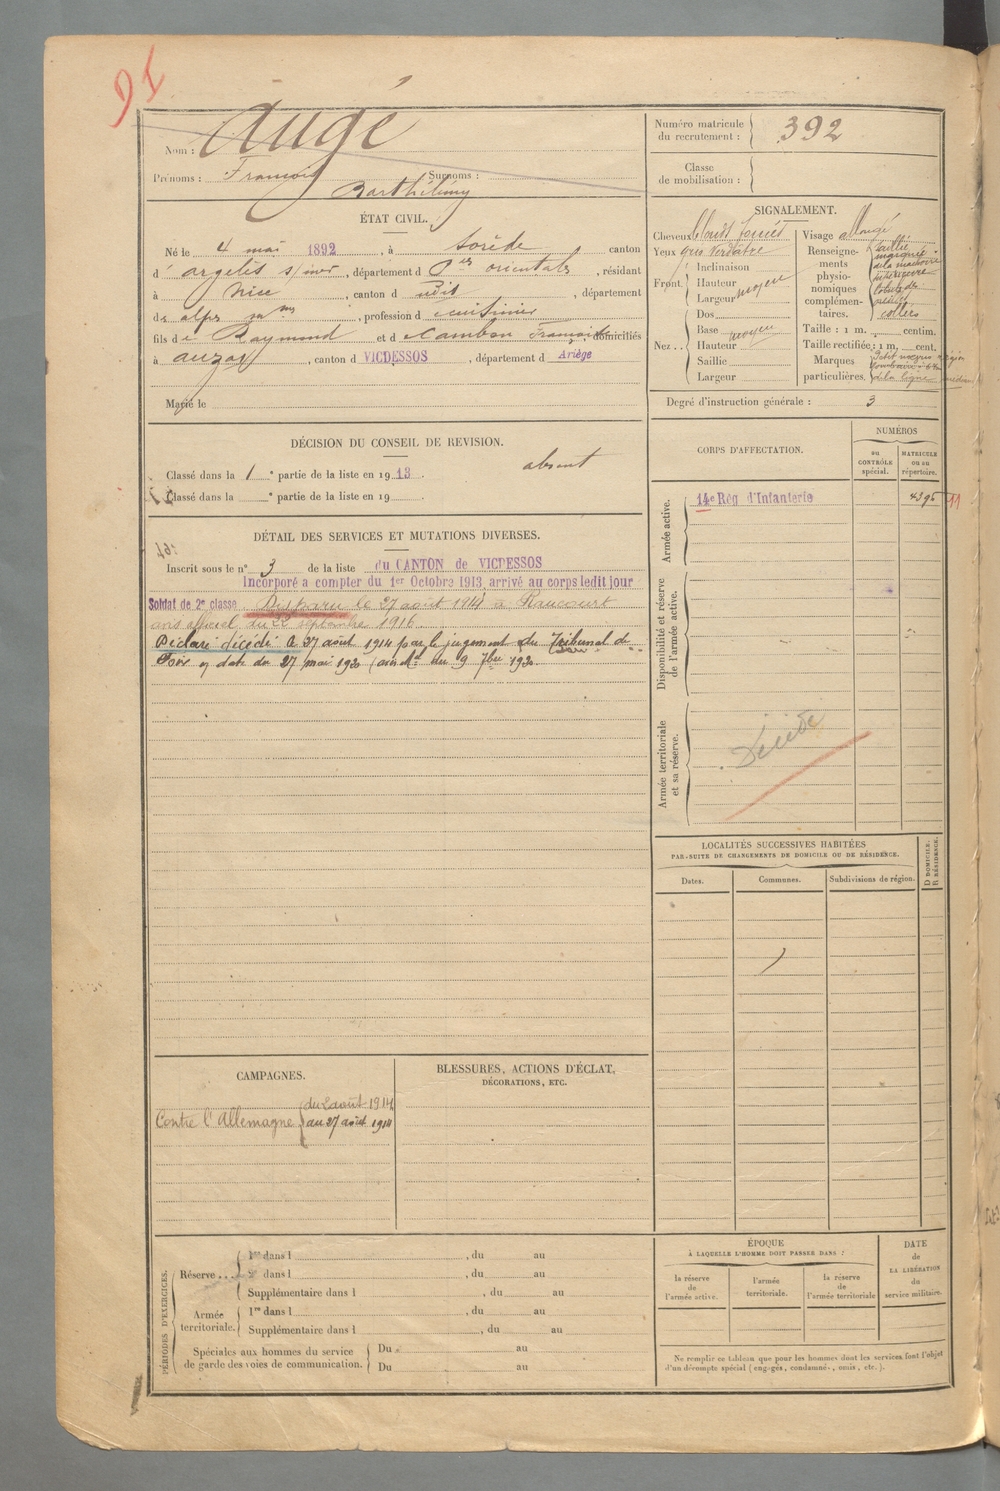 91
Nom : Augé
Prénoms : François Surnoms :
Barthélémy
Numéro matricule du recrutement : 392
Classe de mobilisation :
ÉTAT CIVIL.
Né le 4 mai 1892, à Sorède canton
d'argelès s/mer, département d Pées orientales, résidant
à Nice, canton d udit, département
des alpes mmes, profession d cuisinier
fils de Raymond et d Cambon Françoise domiciliés
à auzat, canton d VICDESSOS, département d Ariège
Marié le
SIGNALEMENT.
Cheveux blonds foncés Visage allongé
Yeux gris verdâtre
Front Inclinaison
Hauteur
Largeur moyenne
Nez.. Dos
Base moyen
Hauteur
Saillie
Largeur
Renseignements physionomiques complémentaires.
collés
Taille : 1 m. centim.
Taille rectifiée : 1 m. cent.
Marques particulières.
de la ligne
Degré d'instruction générale : 3
DÉCISION DU CONSEIL DE REVISION.
Classé dans la 1 e partie de la liste en 1913. absent
Classé dans la e partie de la liste en 19 .
CORPS D'AFFECTATION.
NUMÉROS
au CONTRÔLE spécial.
MATRICULE ou au répertoire.
Armée active.
14e Rég d'Infanterie 4396 11
Disponibilité et réserve de l'armée active.
Armée territoriale et sa réserve.
Décédé
DÉTAIL DES SERVICES ET MUTATIONS DIVERSES.
Inscrit sous le n° 3 de la liste du CANTON de VICDESSOS
Incorporé à compter du 1er Octobre 1913 arrivé au corps ledit jour
Soldat de 2e classe. Disparu le 27 août 1914 à Raucourt
avis officiel du 22 septembre 1916.
Déclaré décédé le 27 août 1914 par le jugement du Tribunal de
Foix en date du 27 mai 1920 (avis du 9 7bre 1920
LOCALITÉS SUCCESSIVES HABITÉES
PAR SUITE DE CHANGEMENTS DE DOMICILE OU DE RÉSIDENCE.
Dates.
Communes.
Subdivisions de région.
D DOMICILE.
R RÉSIDENCE.
CAMPAGNES.
Contre l'Allemagne
du 2 août 1914
au 27 août 1914
BLESSURES, ACTIONS D'ÉCLAT,
DÉCORATIONS, ETC.
PÉRIODES D'EXERCICES.
Réserve...
1re dans l , du au
2e dans l , du au
Supplémentaire dans l , du au
Armée territoriale.
1re dans l , du au
Supplémentaire dans l , du au
Spéciales aux hommes du service de garde des voies de communication.
Du au
Du au
ÉPOQUE
À LAQUELLE L'HOMME DOIT PASSER DANS :
la réserve de l'armée active.
l'armée territoriale.
la réserve de l'armée territoriale
DATE de LA LIBÉRATION du service militaire.
Ne remplir ce tableau que pour les hommes dont les services font l'objet
d'un décompte spécial (engagés, condamnés, omis, etc.).